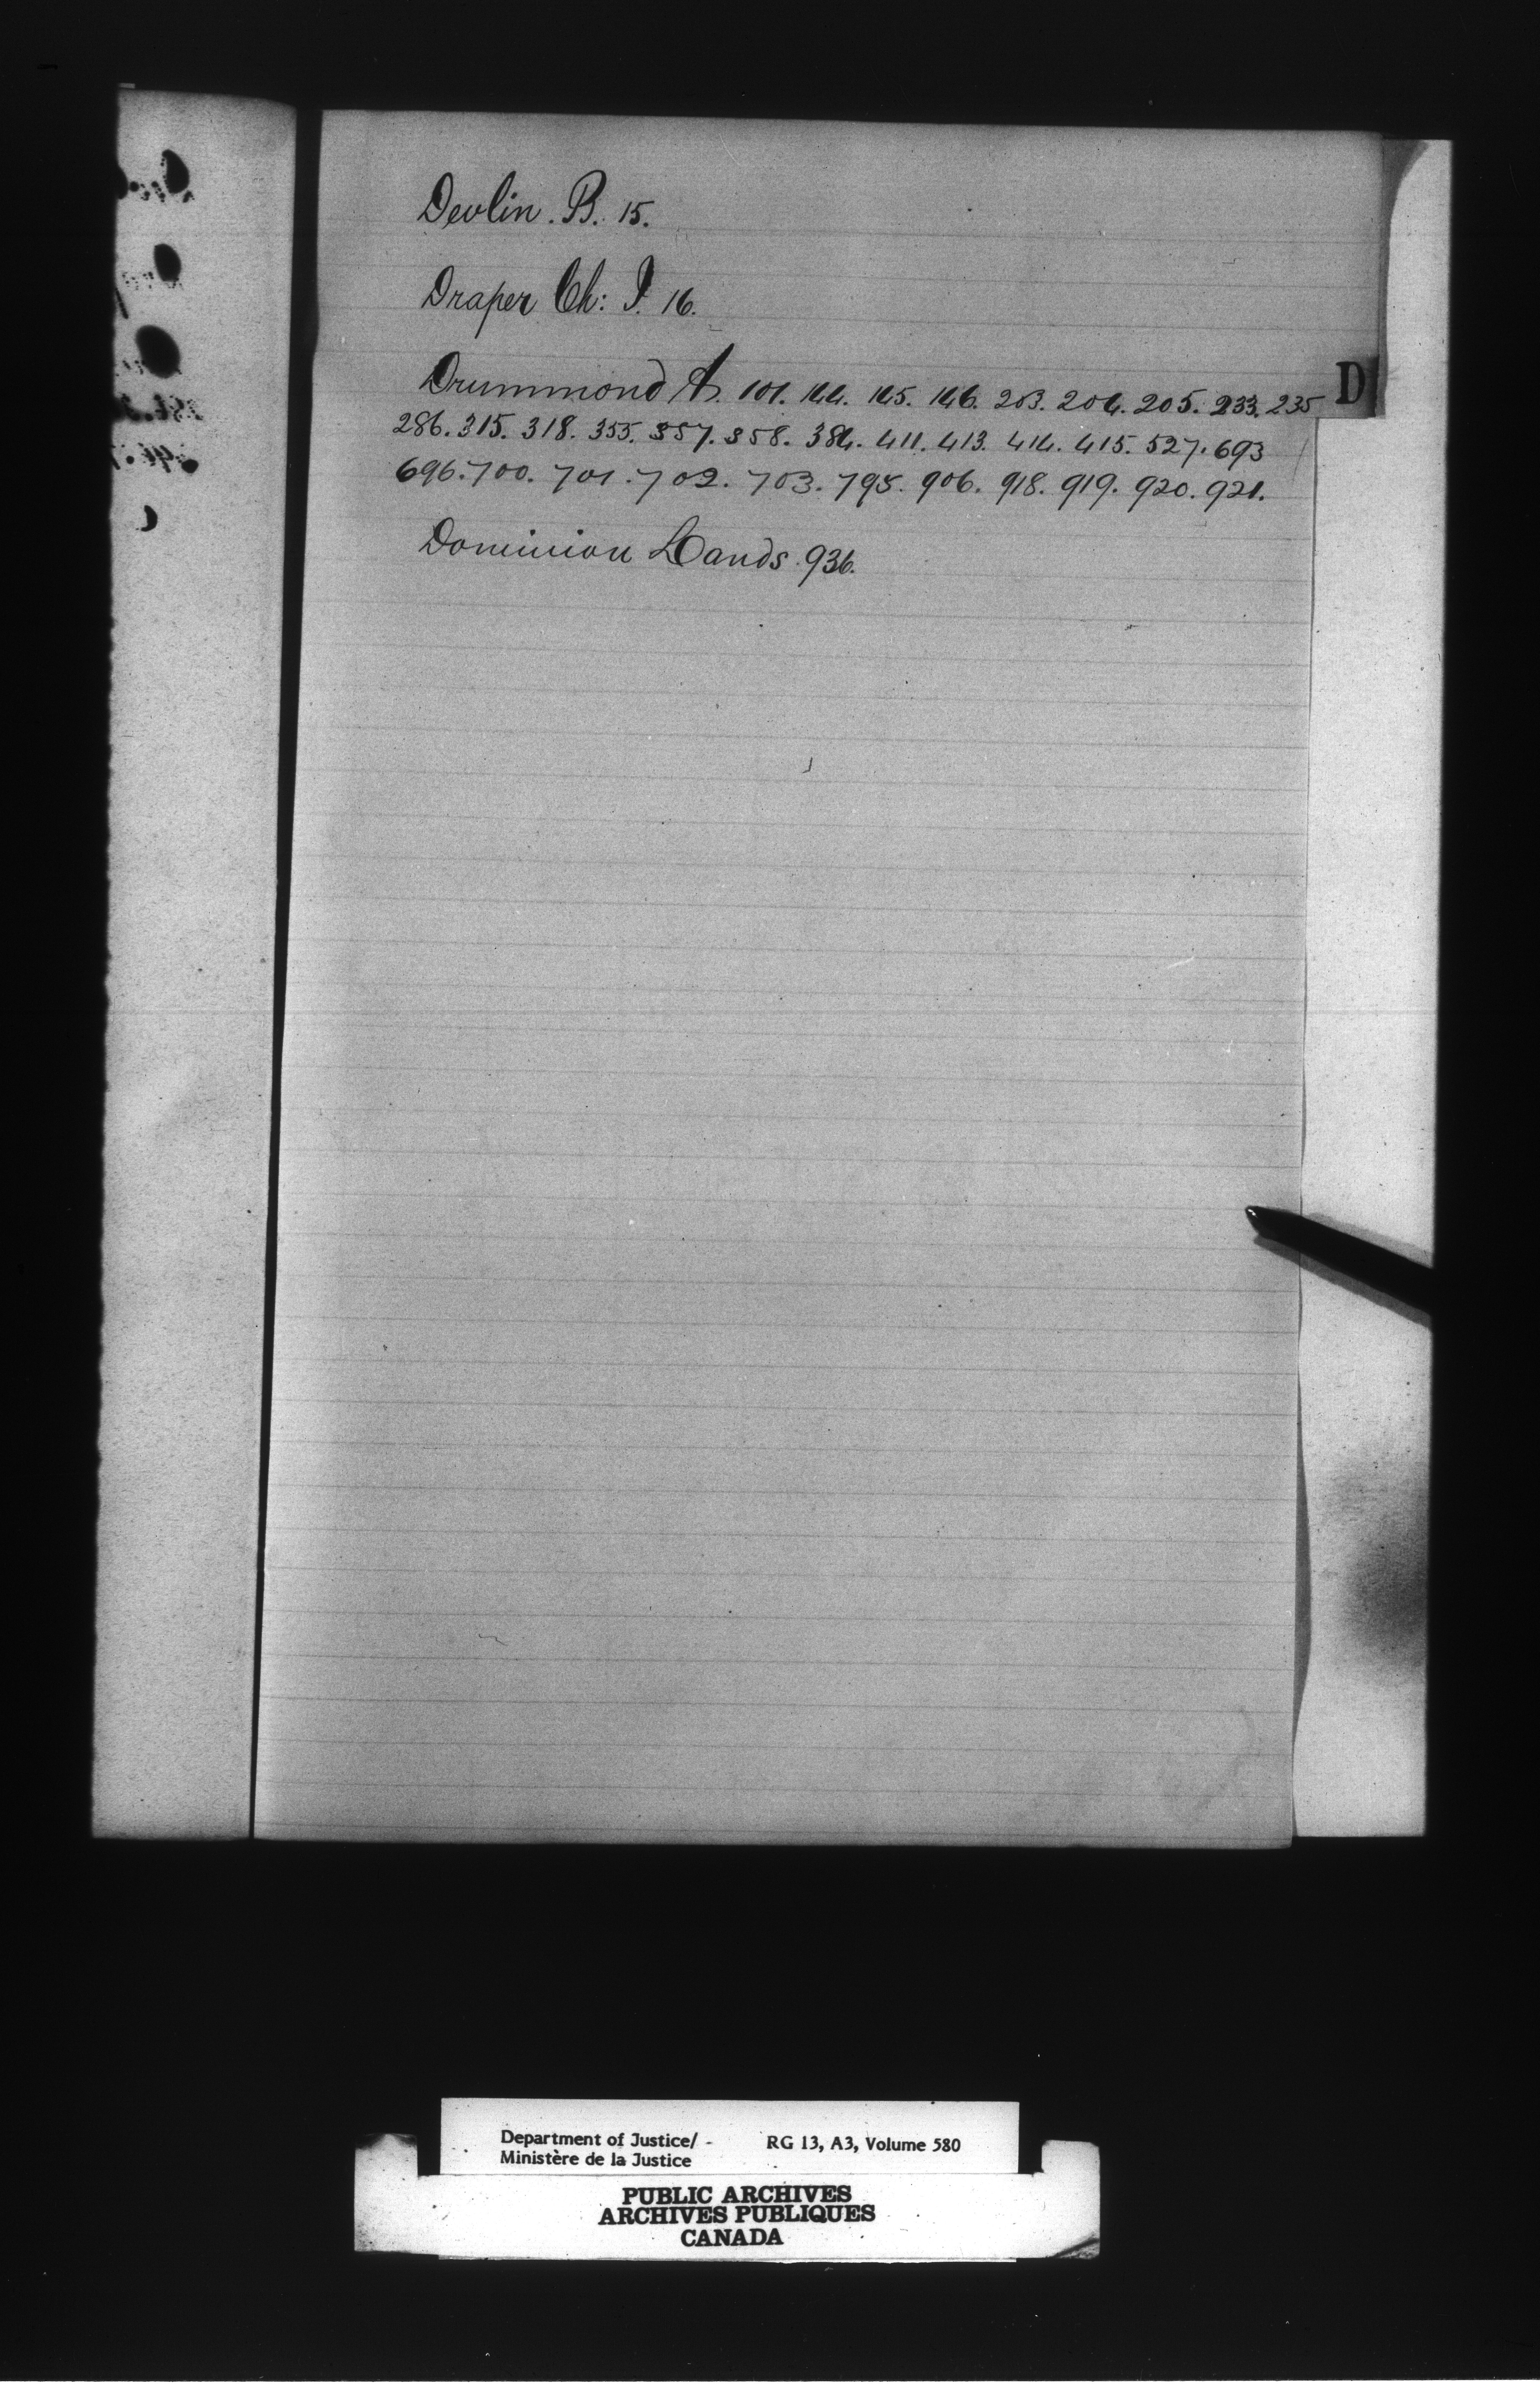 Devlin. B. 15.
Draper Ch: J. 16.
Drummond A. 101. 144. 145. 146. 203. 204. 205. 233. 235
D
286. 315. 318. 355. 357. 358. 384. 411. 413. 414. 415. 527. 693
696. 700. 701. 702. 703. 795. 906. 918. 919. 920. 921.
Dominion Lands. 936.
Department of Justice/ RG 13, A3, Volume 580
Ministère de la Justice
PUBLIC ARCHIVES
ARCHIVES PUBLIQUES
CANADA